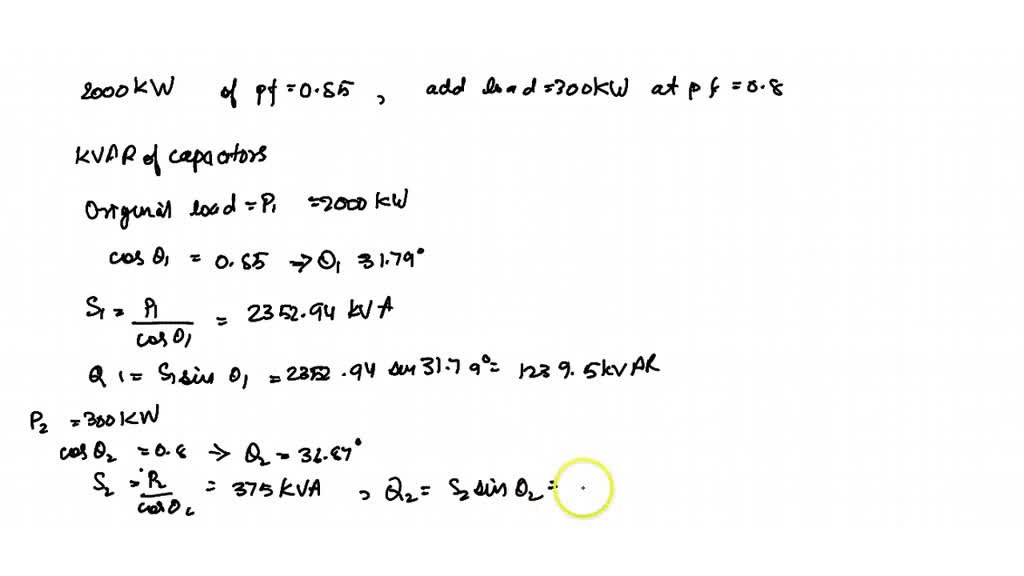 2000KW of pf = 0.85 , add load = 300KW at pf = 0.8
KVAR of capactors
Original load = P₁ = 2000 KW
cos θ₁ = 0.85 → θ₁ = 31.79°
S₁ = P₁ / cos θ₁ = 2352.94 KVA
Q 1 = S₁ sin θ₁ = 2352.94 sin 31.79° = 1239.5 KVAR
P₂ = 300 KW
cos θ₂ = 0.8 → θ₂ = 36.87°
S₂ = P₂ / cos θ₂ = 375 KVA , Q₂ = S₂ sin θ₂ =